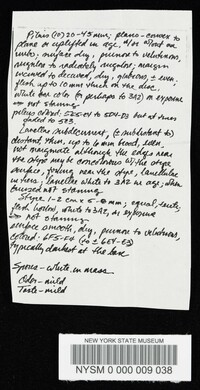 Pileus (10) 20-45 mm; plano-convex to
plane or uplifted in age, w/or w/out an
umbo; surface dry, pruinose to velutinous,
rugulose to radiately rugulose; margin
incurved to decurved, dry, glabrous, ± even,
flesh up to 10 mm thick on the disc,
white bar color (or perhaps to 3A2) on exposure
not staining
pileus colored: 5E5-E4 to 5D4-D3 but at times
faded to 5C3
Lamellae subdecurrent, (± subdistant to)
distant, thin, up to 6 mm broad, even,
not marginate although the edges near
the stipe may be concolorous w/ the stipe
surface, forking near the stipe, lamellulae
in tiers, lamellae white to 3A2 in age; when
bruised not staining
Stipe 1-2 cm x 5-8 mm; equal, terete;
flesh hollow, white to 3A2, on exposure
not staining
surface smooth, dry, pruinose to velutinous,
colored 6F5-F4 (to ± 6E4-E3)
typically darkest at the base
Spores - white in mass
Odor - mild
Taste - mild
NEW YORK STATE MUSEUM
NYSM 0 000 009 038